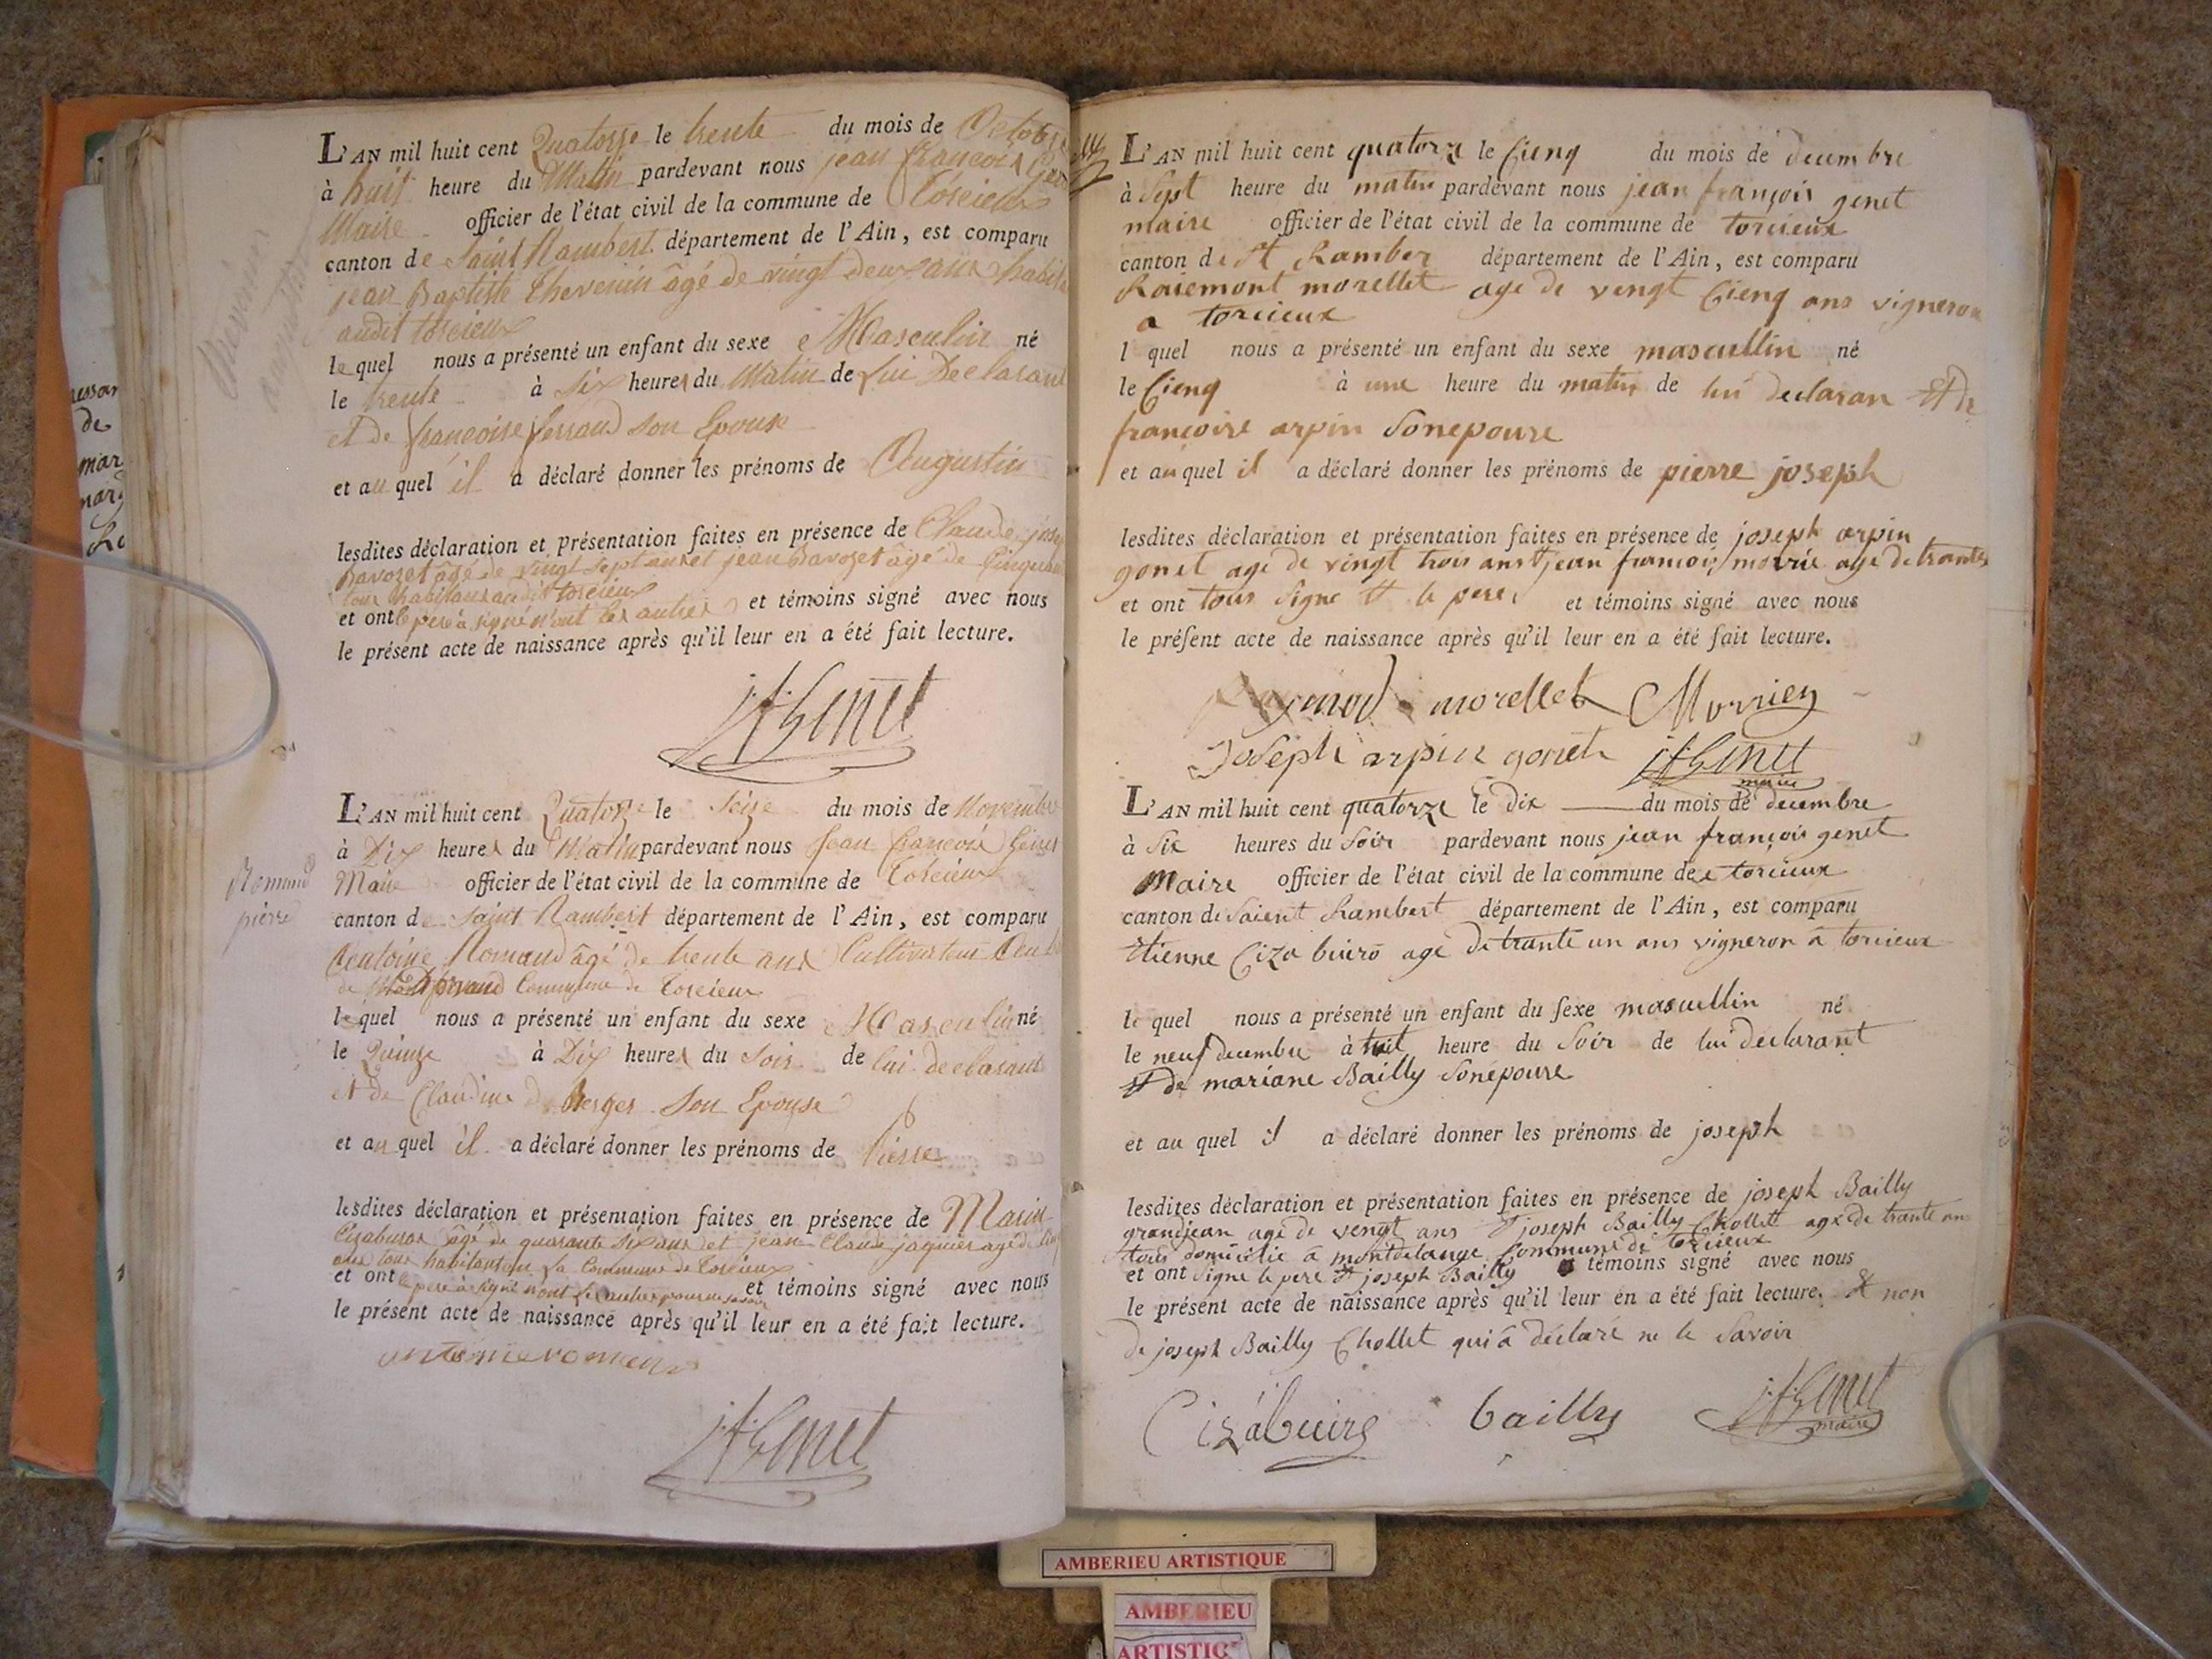 L'AN mil huit cent Quatorze le trente du mois de Octobre
à huit heure du Matin pardevant nous jean françois
Maire officier de l'état civil de la commune de Torcieux
canton de Saint Rambert département de l'Ain, est comparu
jean Baptiste Thevenin âgé de vingt deux ans
audit torcieux
lequel nous a présenté un enfant du sexe Masculin né
le trente à Six heures du Matin de Lui Declarant
et de françoise ferrand son Epouse
et au quel il a déclaré donner les prénoms de Augustin
lesdites déclaration et présentation faites en présence de Claude
Ravozet âgé de vingt sept ans et jean Ravozet âgé de
tous habitans audit torcieux
et ont le pere à signé n'ont les autres et témoins signé avec nous
le présent acte de naissance après qu'il leur en a été fait lecture.
jf Genet
Romand
pierre
L'AN mil huit cent Quatorze le Seize du mois de Novembre
à Dix heures du Matin pardevant nous Jean François Genet
Maire officier de l'état civil de la commune de Torcieux
canton de Saint Rambert département de l'Ain, est comparu
Antoine Romand âgé de trente ans Cultivateur
de Commune de Torcieux
lequel nous a présenté un enfant du sexe Masculin né
le Quinze à Dix heures du Soir de lui declarant
et de Claudine Berger Son Epouse
et au quel il a déclaré donner les prénoms de Pierre
lesdites déclaration et présentation faites en présence de Marin
Cizabuiros âgé de quarante six ans et jean Claude jaquier agé de
ans tous habitants en la Commune de Torcieux
et ont le pere à signé n'ont les autres pour ne savoir et témoins signé avec nous
le présent acte de naissance après qu'il leur en a été fait lecture.
antoine roman
jf Genet
L'AN mil huit cent quatorze le Cienq du mois de decembre
à Sept heure du matin pardevant nous jean françois genet
maire officier de l'état civil de la commune de torcieux
canton de St Ramber département de l'Ain, est comparu
Raiemont morellet age de vengt Cienq ans vigneron
a torcieux
l quel nous a présenté un enfant du sexe masculllin né
le Cienq à une heure du matin de lui declaran Et de
francoise arpin Sonepouse
et au quel il a déclaré donner les prénoms de pierre joseph
lesdites déclaration et présentation faites en présence de joseph arpin
gonet age de vingt trois ans et jean francois morrié age de trante
et ont tous signe et le pere et témoins signé avec nous
le présent acte de naissance après qu'il leur en a été fait lecture.
morellet Morriey
Joseph arpin gonet jf Genet
maire
L'AN mil huit cent quatorze le dix du mois de decembre
à Six heures du Soir pardevant nous jean françois genet
Maire officier de l'état civil de la commune de torcieux
canton de Saient Rambert département de l'Ain, est comparu
Etienne Ciza buiro age de trante un ans vigneron a torcieux
le quel nous a présenté un enfant du sexe masculllin né
le neuf decembre à huit heure du Soir de lui declarant
et de mariane Bailly Sonepouse
et au quel il a déclaré donner les prénoms de joseph
lesdites déclaration et présentation faites en présence de joseph Bailly
grandjean age de vengt ans et joseph Bailly Chollet age de trante ans
tous domicilie a montdelange Commune de torcieux
et ont signe le pere et joseph Bailly témoins signé avec nous
le présent acte de naissance après qu'il leur en a été fait lecture. et non
de joseph Bailly Chollet qui a déclaré ne le Savoir
Cizabuiro bailly jf Genet
maire
AMBERIEU ARTISTIQUE
AMBERIEU